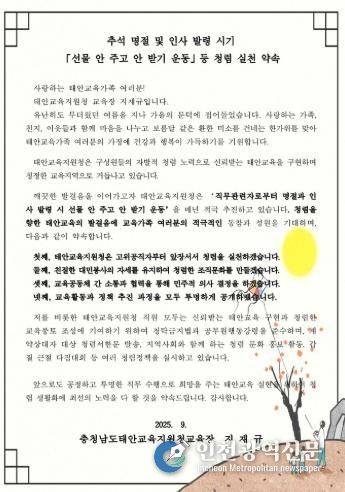 추석 명절 및 인사 발령 시기
「선물 안 주고 안 받기 운동」 등 청렴 실천 약속
사랑하는 태안교육가족 여러분!
태안교육지원청 교육장 지재규입니다.
유난히도 무더웠던 여름을 지나 가을의 문턱에 접어들었습니다. 사랑하는 가족,
친지, 이웃들과 함께 마음을 나누고 보름달 같은 환한 미소를 건네는 한가위를 맞아
태안교육가족 여러분의 가정에 건강과 행복이 가득하기를 기원합니다.
태안교육지원청은 구성원들의 자발적 청렴 노력으로 신뢰받는 태안교육을 구현하며
청정한 교육지역으로 거듭나고 있습니다.
깨끗한 발걸음을 이어가고자 태안교육지원청은 '직무관련자로부터 명절과 인
사 발령 시 선물 안 주고 안 받기 운동'을 매년 적극 추진하고 있습니다. 청렴을
향한 태안교육의 발걸음에 교육가족 여러분의 적극적인 동참과 성원을 기대하며,
다음과 같이 약속합니다.
첫째, 태안교육지원청은 고위공직자부터 앞장서서 청렴을 실천하겠습니다.
둘째, 친절한 대민봉사의 자세를 유지하여 청렴한 조직문화를 만들겠습니다.
셋째, 교육공동체 간 소통과 협력을 통해 민주적 의사 결정을 하겠습니다.
넷째, 교육활동과 정책 추진 과정을 모두 투명하게 공개하겠습니다.
저를 비롯한 태안교육지원청 직원 모두는 신뢰받는 태안교육 구현과 청렴한
교육풍토 조성에 기여하기 위하여 청탁금지법과 공무원행동강령을 준수하며, 계
약상대자 대상 청렴서한문 발송, 지역사회와 함께 하는 청렴 문화 홍보 활동, 갑
질 근절 다짐대회 등 여러 청렴정책을 실시하고 있습니다.
앞으로도 공정하고 투명한 직무 수행으로 희망을 주는 태안교육 실현을 위하여 청
렴 생활화에 최선의 노력을 다 할 것을 약속드립니다. 감사합니다.
2025. 9.
충청남도태안교육지원청교육장 지 재 규
인천광역신문
Incheon Metropolitan newspaper